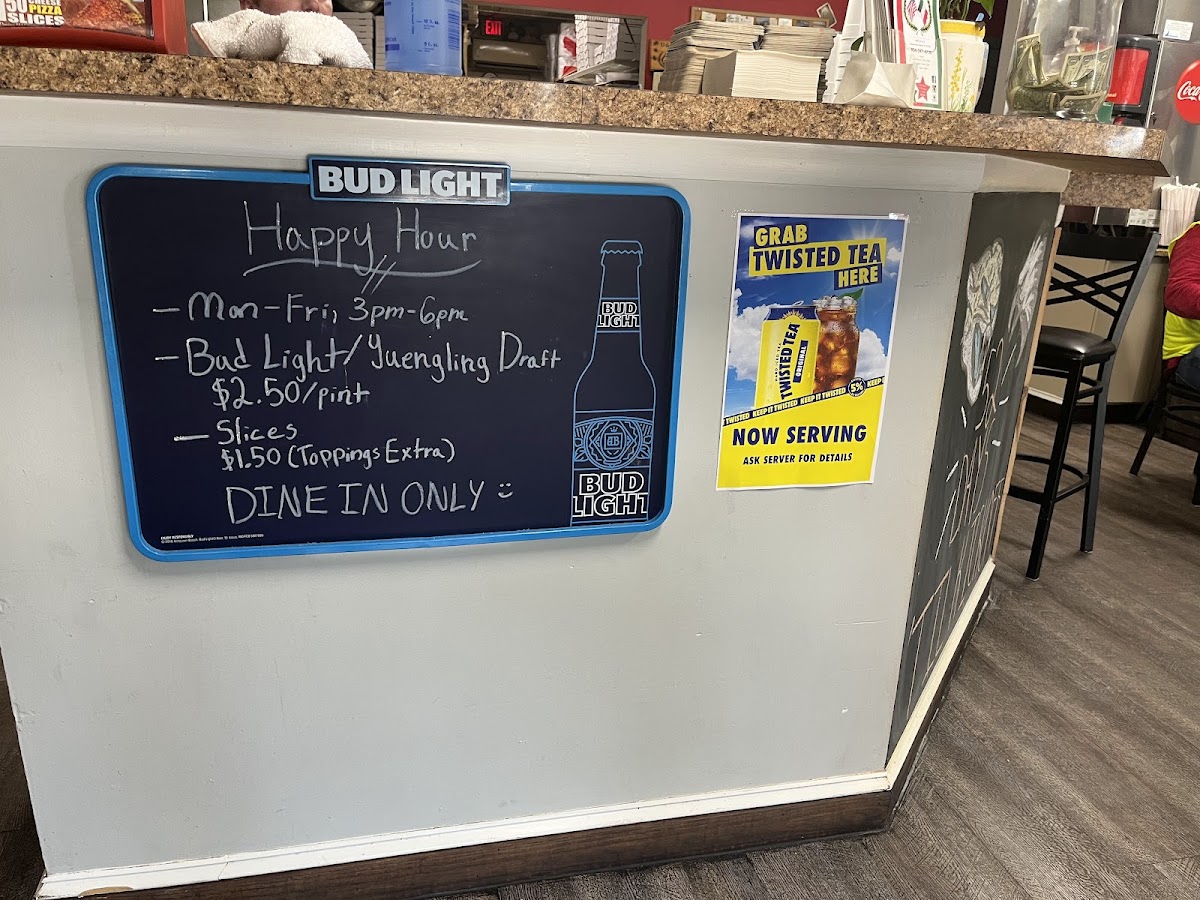 50 CHEESE
PIZZA
SLICES
EXIT
Coca
BUD LIGHT
Happy Hour
- Mon-Fri, 3pm-6pm
- Bud Light/Yuengling Draft
$2.50/pint
- Slices
$1.50 (Toppings Extra)
DINE IN ONLY
BUD
LIGHT
BUD
LIGHT
GRAB
TWISTED TEA
HERE
TWISTED TEA
ORIGINAL
TWISTED KEEP IT TWISTED KEEP IT TWISTED 5% KEEP
NOW SERVING
ASK SERVER FOR DETAILS